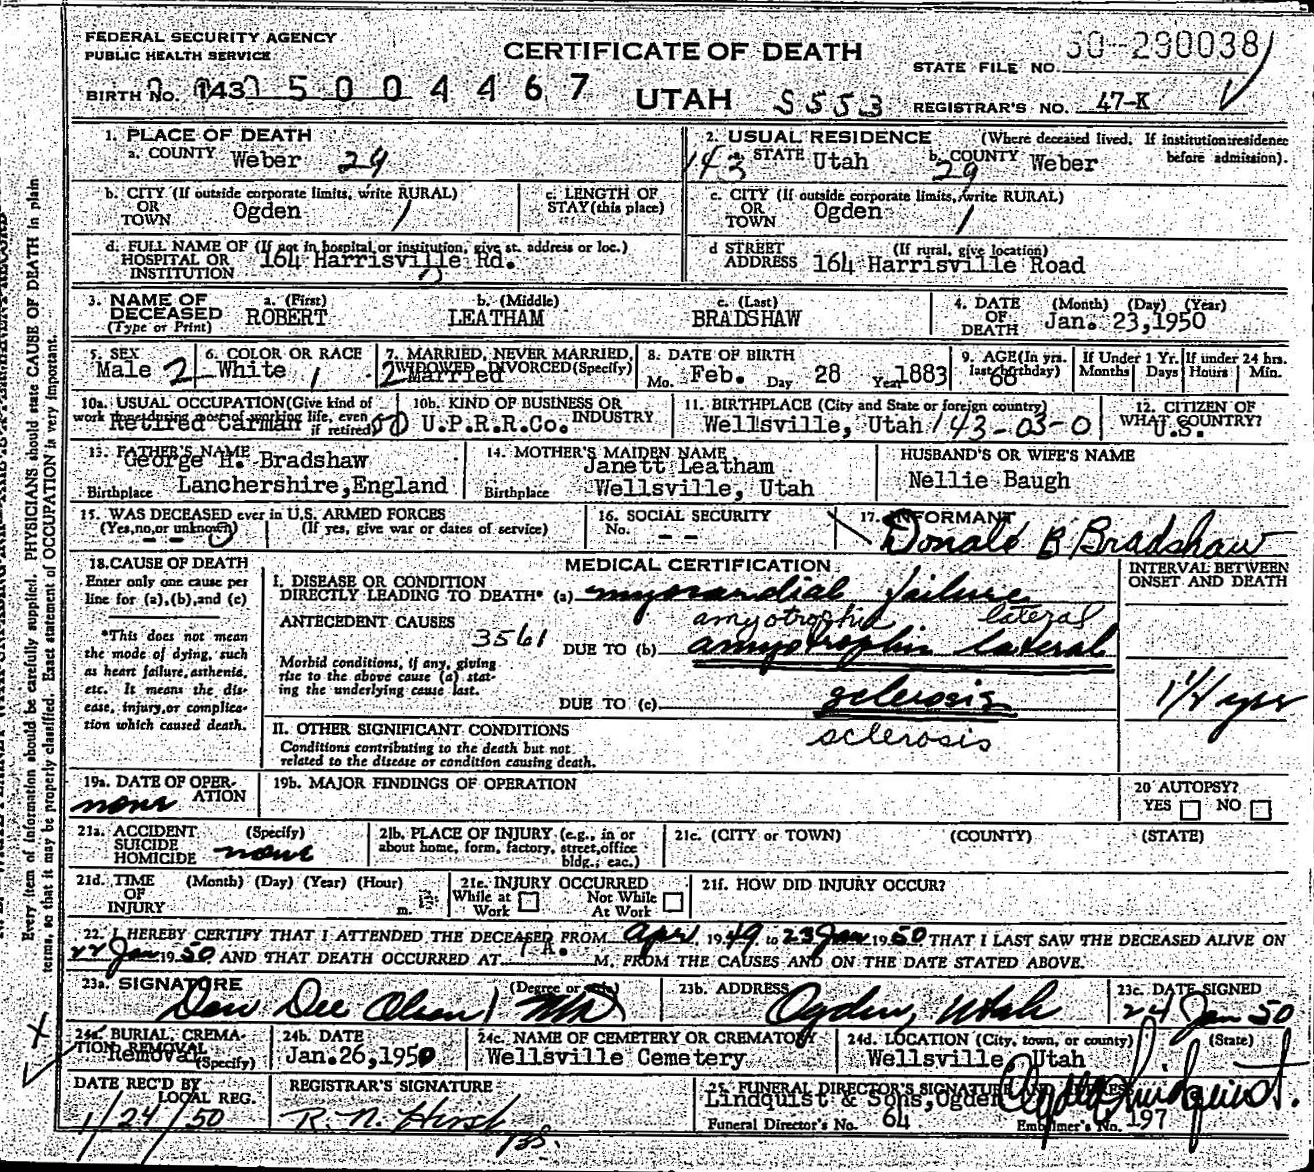 FEDERAL SECURITY AGENCY
PUBLIC HEALTH SERVICE
CERTIFICATE OF DEATH
UTAH S553
STATE FILE NO. 50-290038
BIRTH NO. 143 5004467
REGISTRAR'S NO. 47-K
Every item of information should be carefully supplied. PHYSICIANS should state CAUSE OF DEATH in plain
terms, so that it may be properly classified. Exact statement of OCCUPATION is very important.
1. PLACE OF DEATH
a. COUNTY Weber 29
2. USUAL RESIDENCE (Where deceased lived. If institution:residence before admission).
143 a. STATE Utah b. COUNTY Weber 29
b. CITY (If outside corporate limits, write RURAL)
OR TOWN Ogden 1
c. LENGTH OF STAY (this place)
c. CITY (If outside corporate limits, write RURAL)
OR TOWN Ogden 1
d. FULL NAME OF (If not in hospital or institution, give st. address or loc.)
HOSPITAL OR INSTITUTION 164 Harrisville Rd.
d STREET ADDRESS (If rural, give location)
164 Harrisville Road
3. NAME OF DECEASED (Type or Print)
a. (First) ROBERT
b. (Middle) LEATHAM
c. (Last) BRADSHAW
4. DATE OF DEATH (Month) (Day) (Year)
Jan. 23,1950
5. SEX Male 2
6. COLOR OR RACE White 1
7. MARRIED, NEVER MARRIED, WIDOWED, DIVORCED (Specify)
2 Married
8. DATE OF BIRTH
Mo. Feb. Day 28 Year 1883
9. AGE (In yrs. last birthday) 66
If Under 1 Yr. Months Days
If under 24 hrs. Hours Min.
10a. USUAL OCCUPATION (Give kind of work done during most of working life, even if retired)
Retired Carman 50
10b. KIND OF BUSINESS OR INDUSTRY
U.P.R.R.Co.
11. BIRTHPLACE (City and State or foreign country)
Wellsville, Utah 143-03-0
12. CITIZEN OF WHAT COUNTRY?
U.S.
13. FATHER'S NAME
George H. Bradshaw
Birthplace Lanchershire,England
14. MOTHER'S MAIDEN NAME
Janett Leatham
Birthplace Wellsville, Utah
HUSBAND'S OR WIFE'S NAME
Nellie Baugh
15. WAS DECEASED ever in U.S. ARMED FORCES
(Yes,no,or unknown) (If yes, give war or dates of service)
- -
16. SOCIAL SECURITY No. - -
17. INFORMANT
Donald B Bradshaw
18. CAUSE OF DEATH
Enter only one cause per
line for (a),(b),and (c)
*This does not mean
the mode of dying, such
as heart failure, asthenia,
etc. It means the dis-
ease, injury, or complica-
tion which caused death.
MEDICAL CERTIFICATION
INTERVAL BETWEEN ONSET AND DEATH
I. DISEASE OR CONDITION
DIRECTLY LEADING TO DEATH* (a) myocardial failure
ANTECEDENT CAUSES 3561
amyotrophic lateral
DUE TO (b) amyotrophic lateral
Morbid conditions, if any, giving
rise to the above cause (a) stat-
ing the underlying cause last.
DUE TO (c) sclerosis
1 1/4 yrs
sclerosis
II. OTHER SIGNIFICANT CONDITIONS
Conditions contributing to the death but not
related to the disease or condition causing death.
19a. DATE OF OPERATION
none
19b. MAJOR FINDINGS OF OPERATION
20 AUTOPSY?
YES NO
21a. ACCIDENT SUICIDE HOMICIDE (Specify)
none
21b. PLACE OF INJURY (e.g., in or
about home, form, factory, street, office
bldg., eac.)
21c. (CITY or TOWN) (COUNTY) (STATE)
21d. TIME OF INJURY (Month) (Day) (Year) (Hour) m.
21e. INJURY OCCURRED
While at Work Not While At Work
21f. HOW DID INJURY OCCUR?
22. I HEREBY CERTIFY THAT I ATTENDED THE DECEASED FROM Apr 1949 to 23 Jan 1950 THAT I LAST SAW THE DECEASED ALIVE ON
22 Jan 1950 AND THAT DEATH OCCURRED AT 1 A. M. FROM THE CAUSES AND ON THE DATE STATED ABOVE.
23a. SIGNATURE (Degree or title)
Don Dee Olsen MD
23b. ADDRESS
Ogden, Utah
23c. DATE SIGNED
24 Jan 50
24a. BURIAL, CREMATION REMOVAL (Specify)
Removal
24b. DATE
Jan.26,1950
24c. NAME OF CEMETERY OR CREMATORY
Wellsville Cemetery
24d. LOCATION (City, town, or county) (State)
Wellsville, Utah
DATE REC'D BY LOCAL REG.
1/24/50
REGISTRAR'S SIGNATURE
R. N. Hirst
25. FUNERAL DIRECTOR'S SIGNATURE
Lindquist & Sons,Ogden
Funeral Director's No. 64
Embalmer's No. 197